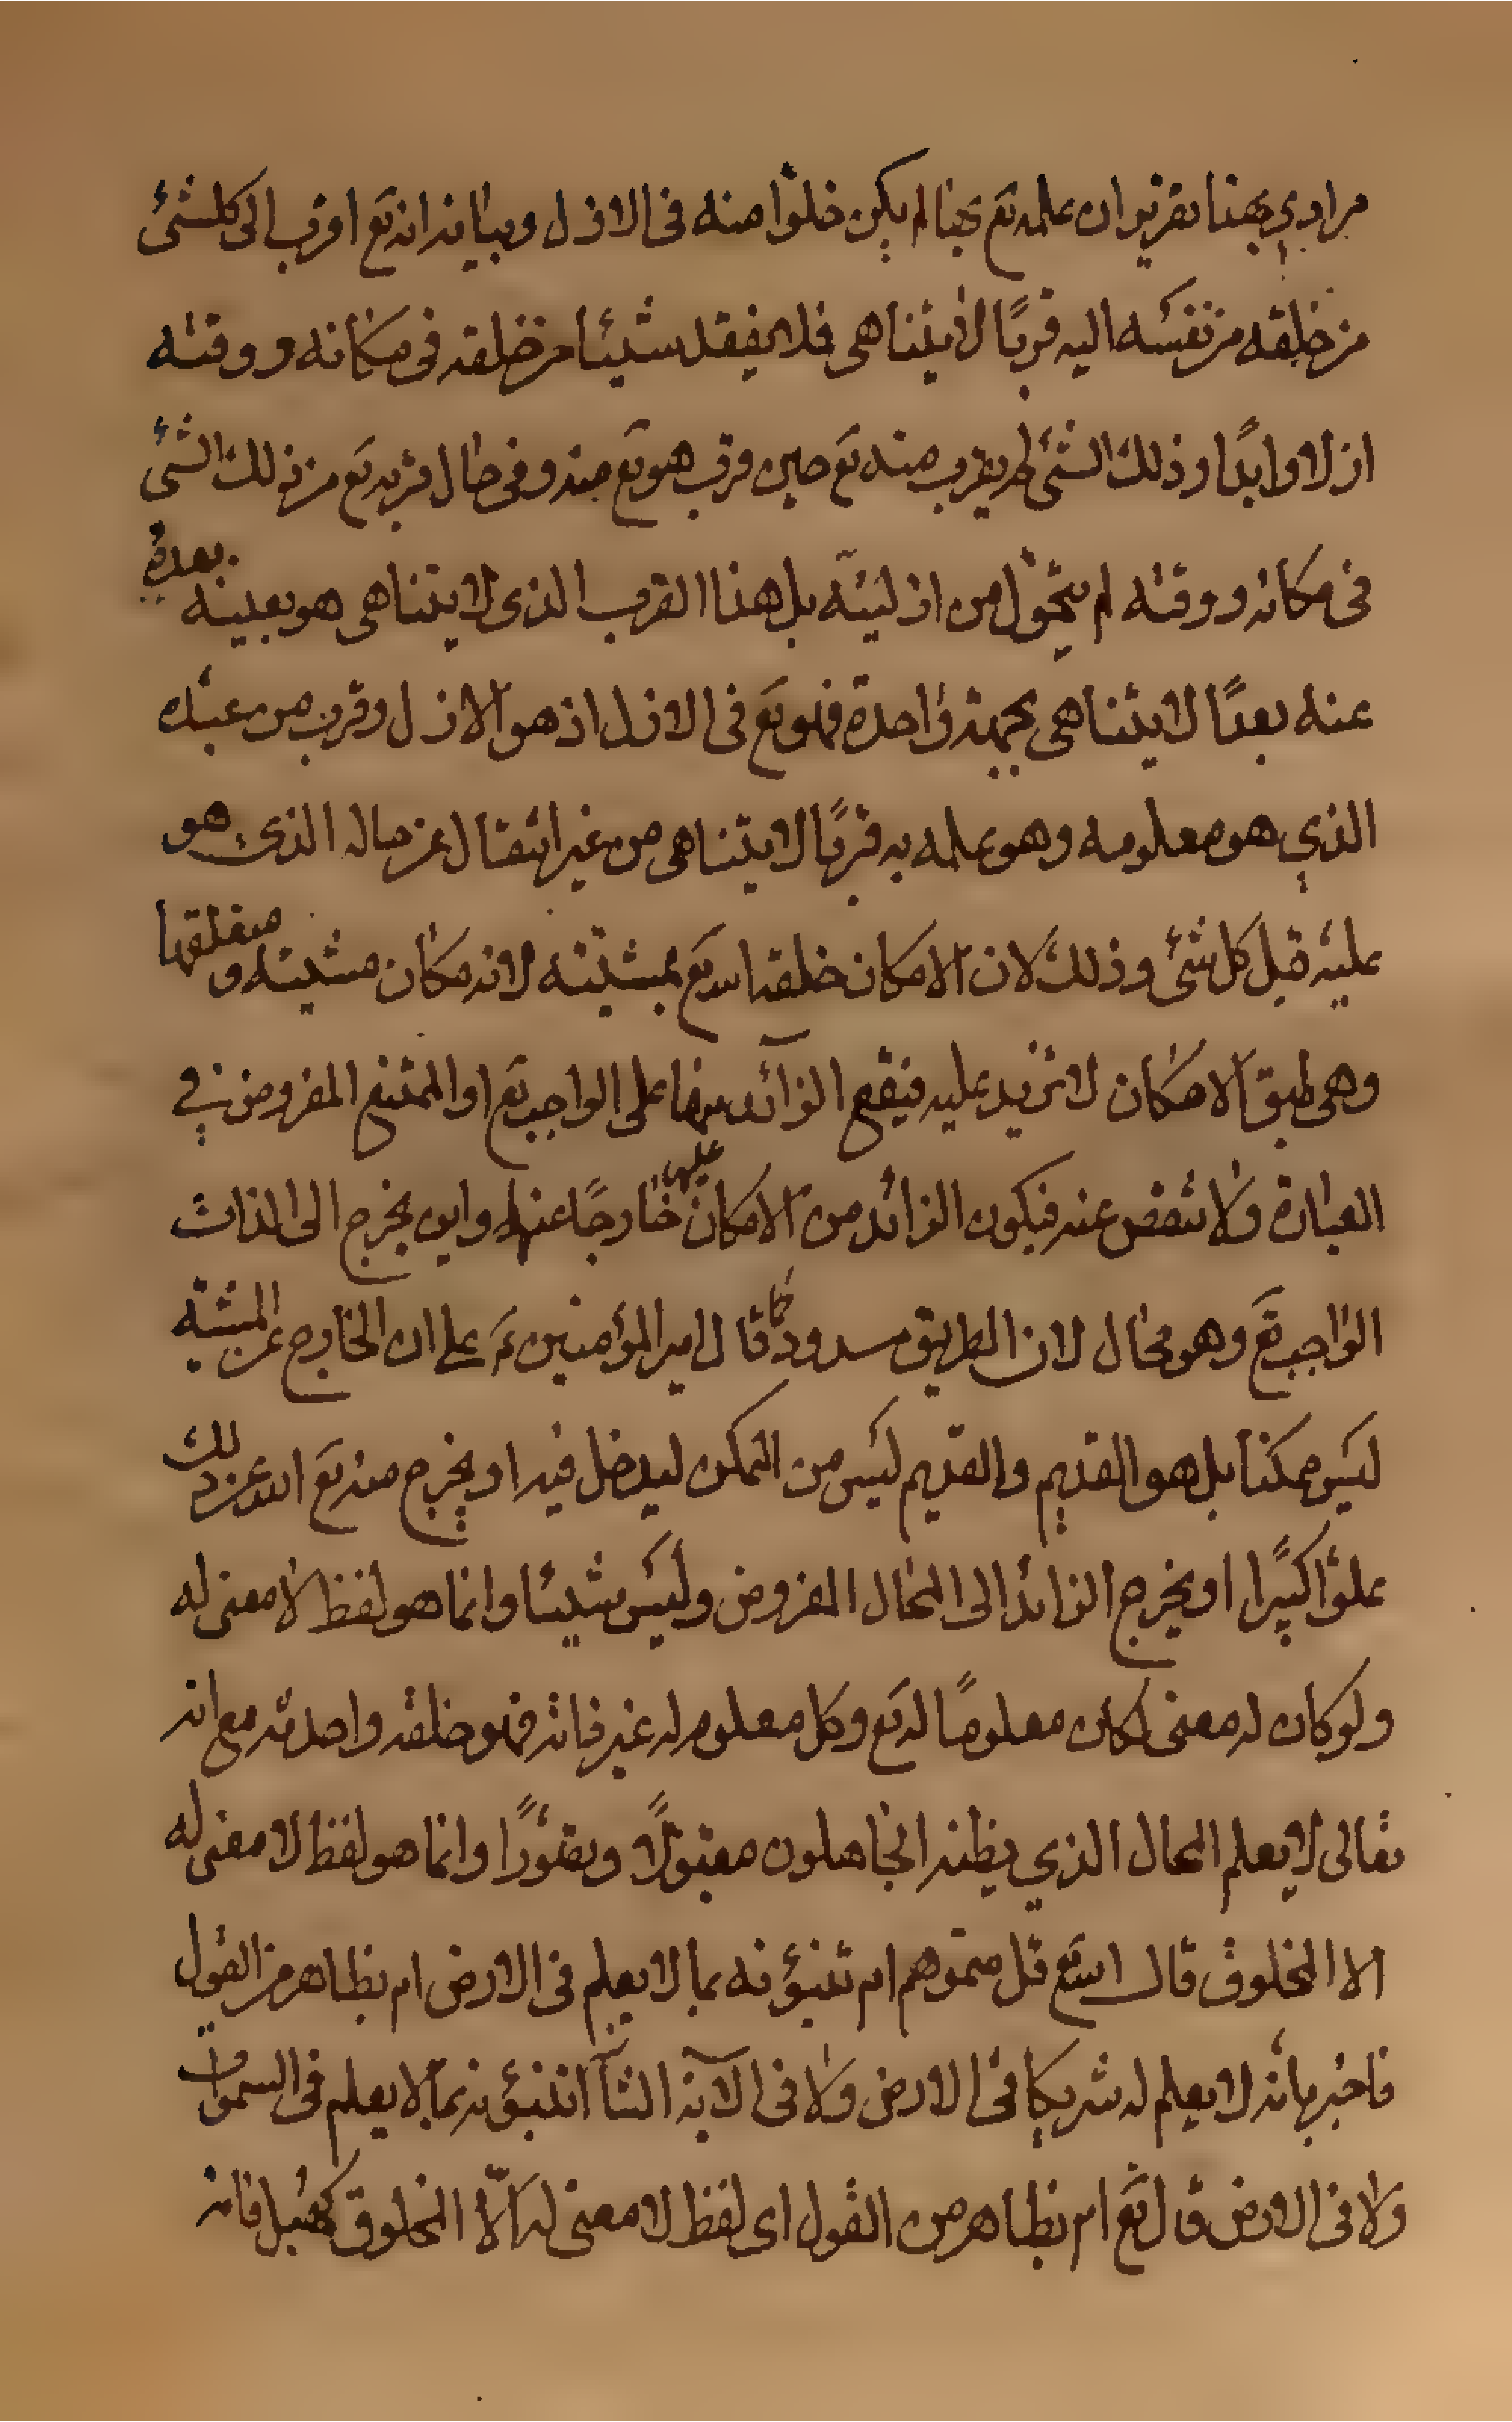 مرادي بهذا تقرير ان علمه تع بجنا لم يكن خلوا منه فى الازل وبيا انه تع اقرب الى كلشئ
من خلقه من نفسه اليه قربًا لا يتناهى فلا يفقد شيئا من خلقه فى مكانه ووقته
ازلا وابدًا وذلك الشئ لم يقرب منه تع حين قرب هو تع منه وفى حال قربه تع من ذلك الشئ
فى مكانه ووقته لم يتحوّل من ازليته بل هذا القرب الذى لا يتناهى هو بعينه بعدهُ
عنه بعدًا لا يتناهى بجهة واحدة فهو تع فى الازل اذ هو الازل وقرب من عبده
الذي هو معلومه وهو علمه به قربًا لا يتناهى من غير انتقال عن حاله الذى هو
عليه قبل كل شئ وذلك لان الامكان خلقه الله تع بمشيّته لانه مكان مشيته و متعلقها
وهى طبق الامكان لا تزيد عليه فيقع الزائد منها على الواجب تع او الممتنع المفروض في
العبارة ولا تنقص عنه فيكون الزائد من الامكان عليها خارجًا عنها واين يخرج الى الذات
الواجب تع وهو محال لان الطريق مسدود كما قال امير المؤمنين ع على ان الخارج عن المشية
ليس ممكنا بل هو القديم والقديم ليس من الممكن ليدخل فيه او يخرج منه تع الله عن ذلك
علوّا كبيرًا او يخرج الزائد الى المحال المفروض وليس شيئا وانما هو لفظ لا معنى له
ولو كان له معنى لكان معلومًا له تع وكل معلوم له غير ذاته فهو خلقه واحدثه مع انه
تعالى لا يعلم المحال الذي يظنه الجاهلون مقبولًا ومتصورًا وانما هو لفظ لا معنى له
الا المخلوق قال الله تع قل سمّوهم ام تنبؤنه بما لا يعلم فى الارض ام بظاهر من القول
فاخبر بانه لا يعلم له شريكا فى الارض ولا فى الآية الثآ اتنبؤنه بما لا يعلم فى السموات
ولا فى الارض قال تع ام بظاهر من القول اى لفظ لا معنى له الّا المخلوق كهبل فانه